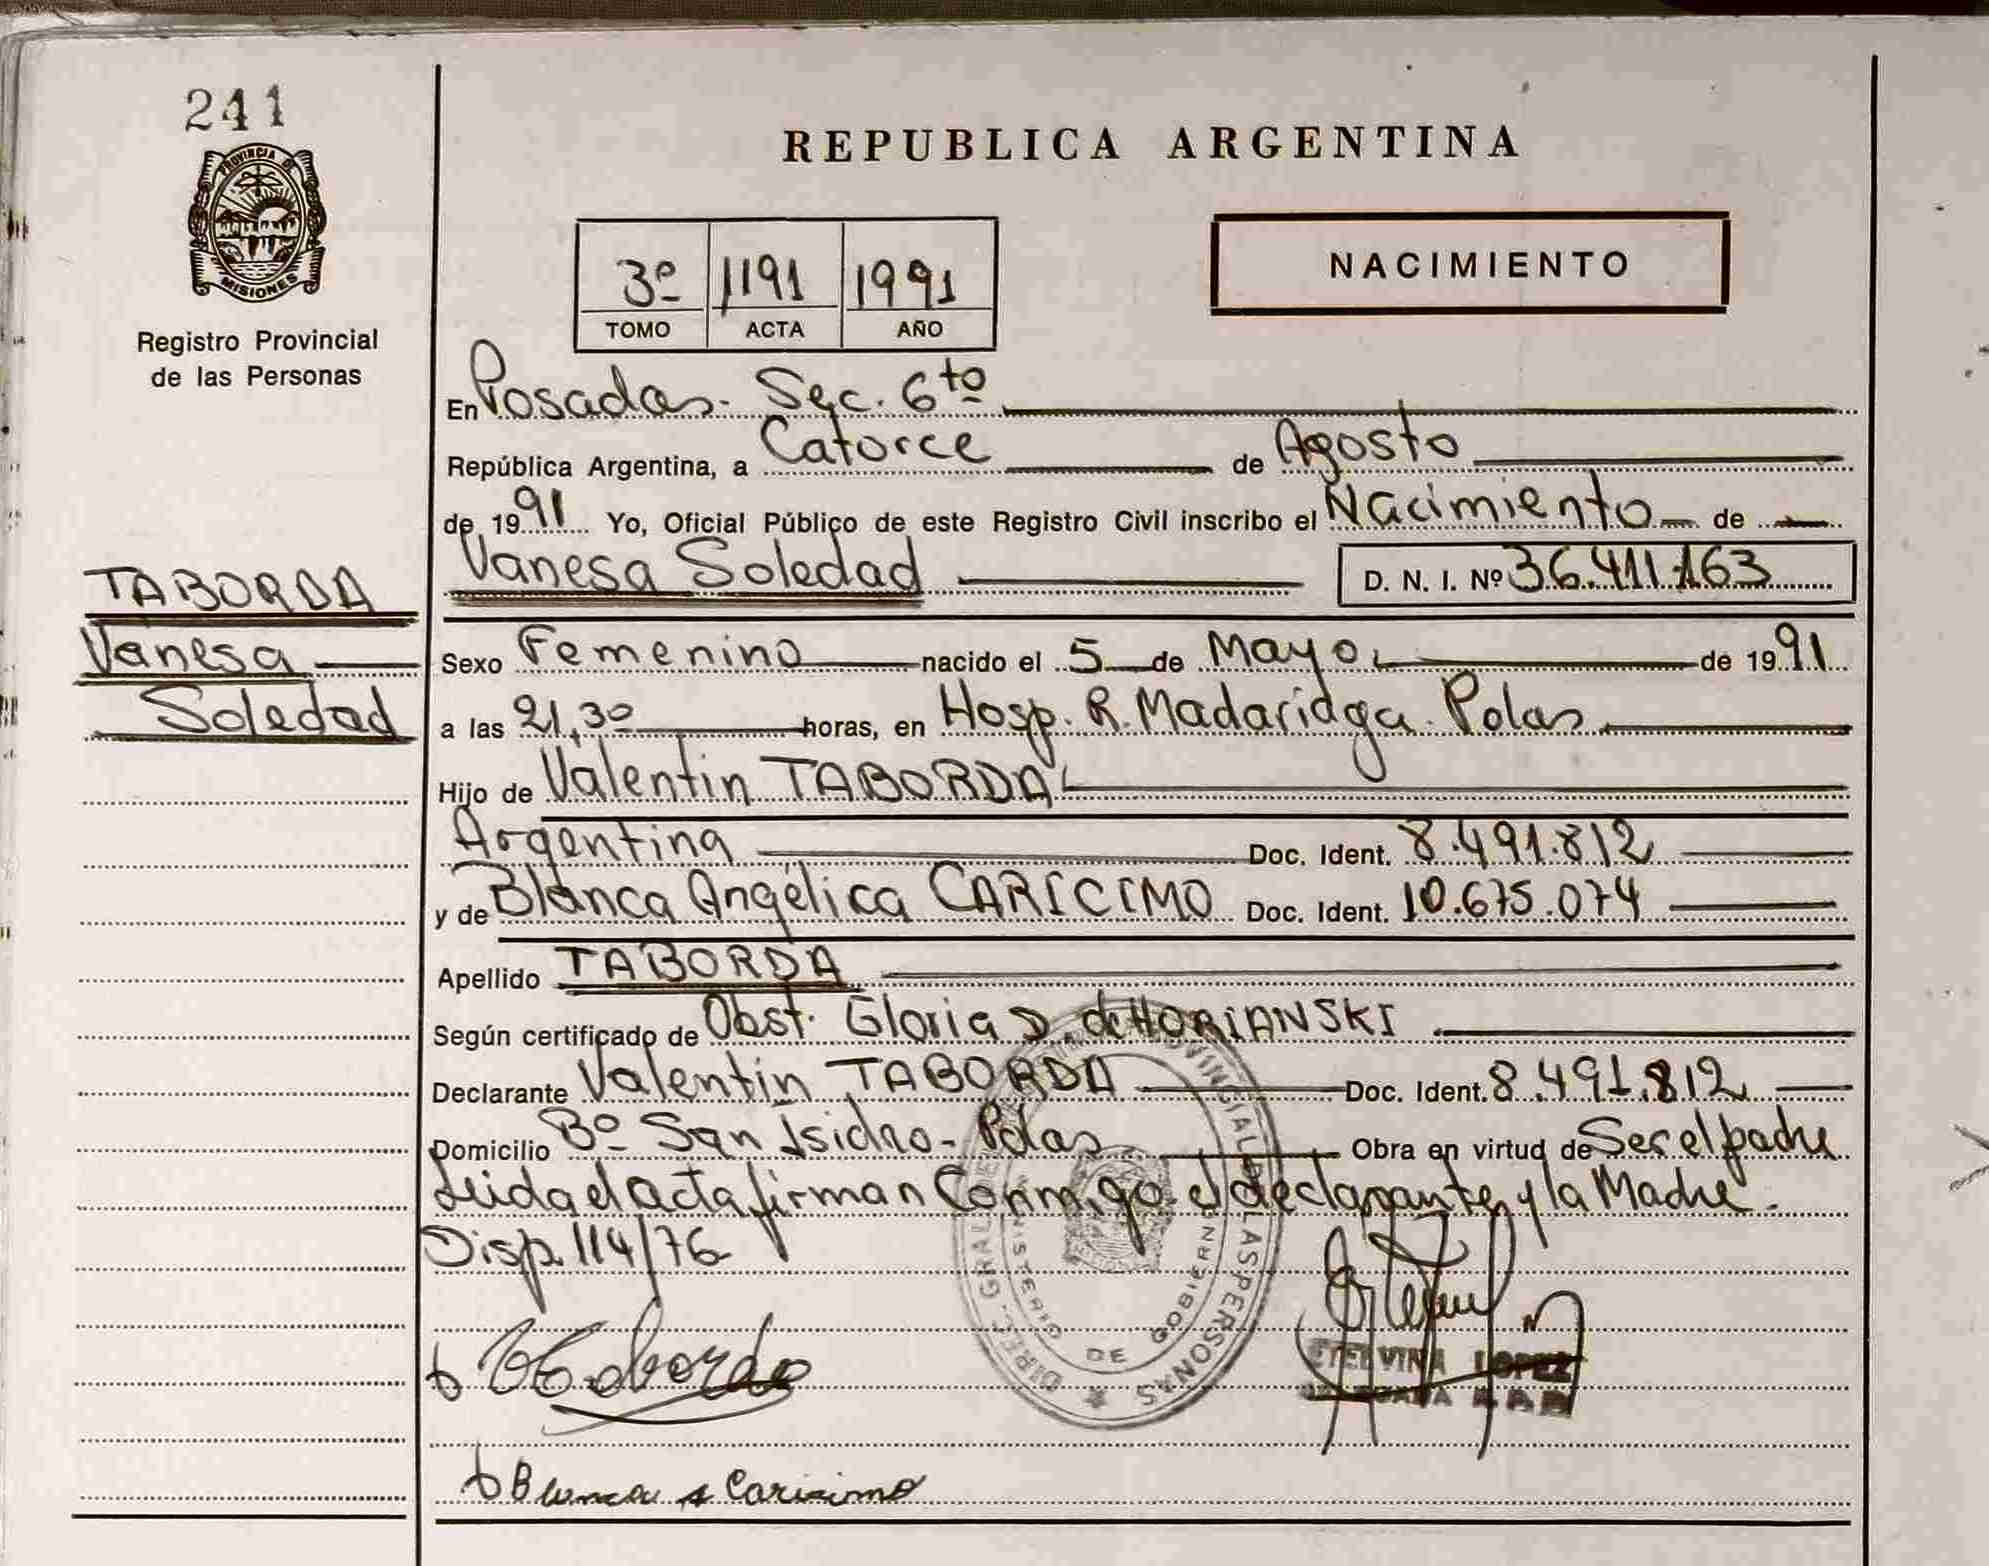 241
PROVINCIA DE
MISIONES
Registro Provincial
de las Personas
REPUBLICA ARGENTINA
NACIMIENTO
3º 1191 1991
TOMO ACTA AÑO
En Posadas - Sec. 6to
República Argentina, a Catorce de Agosto
de 1991 Yo, Oficial Público de este Registro Civil inscribo el Nacimiento de
Vanesa Soledad D. N. I. Nº 36.411.163
TABORDA
Vanesa
Soledad
Sexo Femenino nacido el 5 de Mayo de 1991
a las 21,30 horas, en Hosp. R. Madaridga - Pdas
Hijo de Valentin TABORDA
Argentina Doc. Ident. 8.491.812
y de Blanca Angélica CARICIMO Doc. Ident. 10.675.074
Apellido TABORDA
Según certificado de Obst. Gloria D. de HORIANSKI
Declarante Valentin TABORDA Doc. Ident. 8.491.812
Domicilio Bº San Isidro - Pdas Obra en virtud de Ser el padre
Leida el acta firman Conmigo el declarante y la Madre.
Disp. 114/76
DIREC. GRAL. DEL PROVINCIAL DE LAS PERSONAS
MINISTERIO DE GOBIERNO
ETELVINA LOPEZ
Blanca A Caricimo